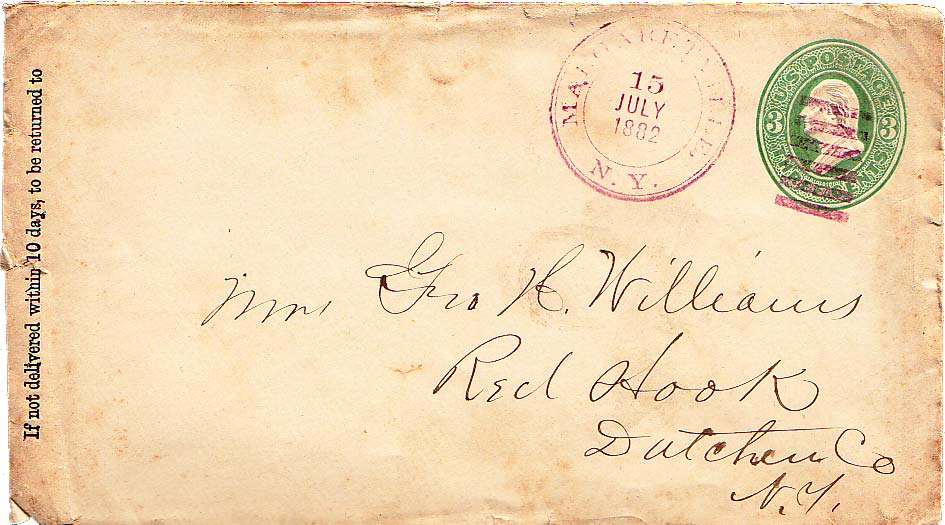 If not delivered within 10 days, to be returned to
MARGARETVILLE
15
JULY
1882
N. Y.
U.S. POSTAGE
3 3
CENTS
Mrs Geo H. Williams
Red Hook
Dutchess Co
N.Y.